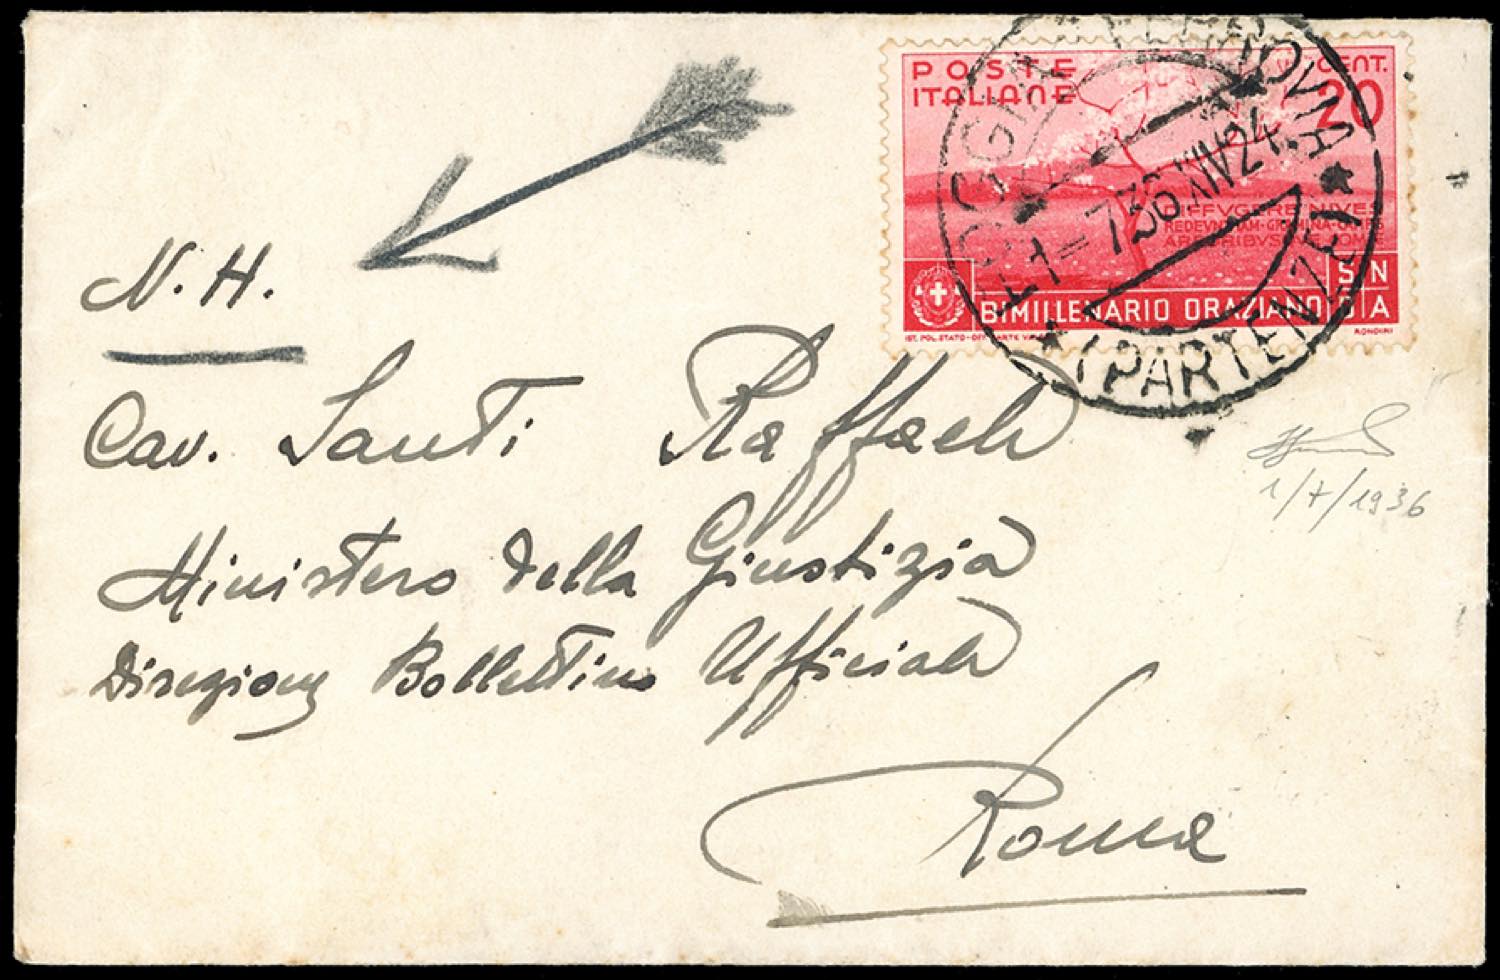 POSTE ITALIANE
CENT. 20
DIFFVGERE NIVES
REDEVNT IAM · GRAMINA · CAMPIS
ARBORIBVSQVE COMAE
BIMILLENARIO ORAZIANO
RONDINI
FOGGIA FERROVIA
1-7 36
(PARTENZE)
N.H.
Cav. Santi Raffaele
Ministero della Giustizia
Direzione Bollettino Ufficiale
Roma
1/7/1936